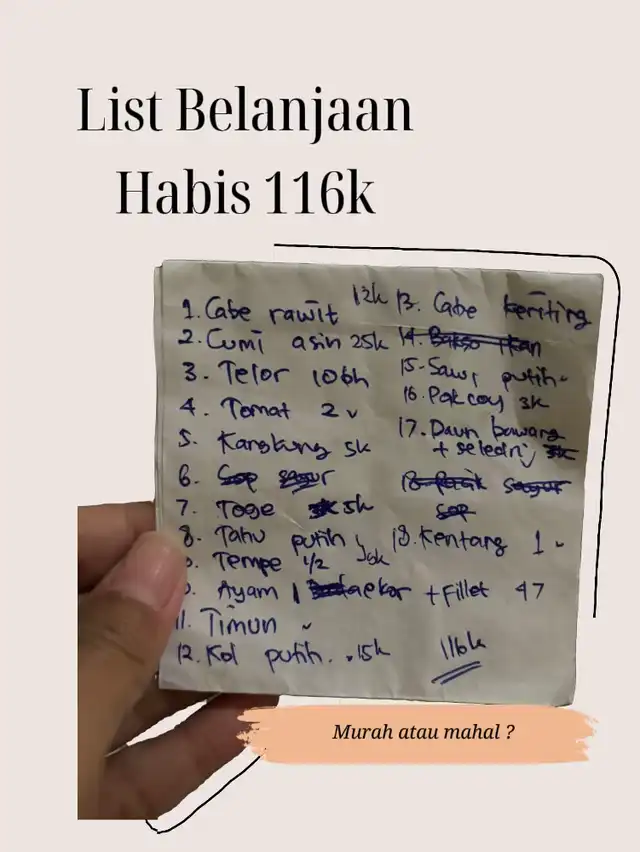 List Belanjaan
Habis 116k
1. Cabe rawit 12k
2. Cumi asin 25k
3. Telor 10bh
4. Tomat 2
5. Kangkung 5k
6. Sop sayur
7. Toge 5k
8. Tahu putih
Tempe 1/2
Ayam 1 ekor + Fillet 47
11. Timun
12. Kol putih. 15k
13. Cabe keriting
14. Bakso Ikan
15. Sawi putih
16. Pokcoy 3k
17. Daun bawang
+ seledri
sayur
sop
18. Kentang 1
116k
Murah atau mahal ?